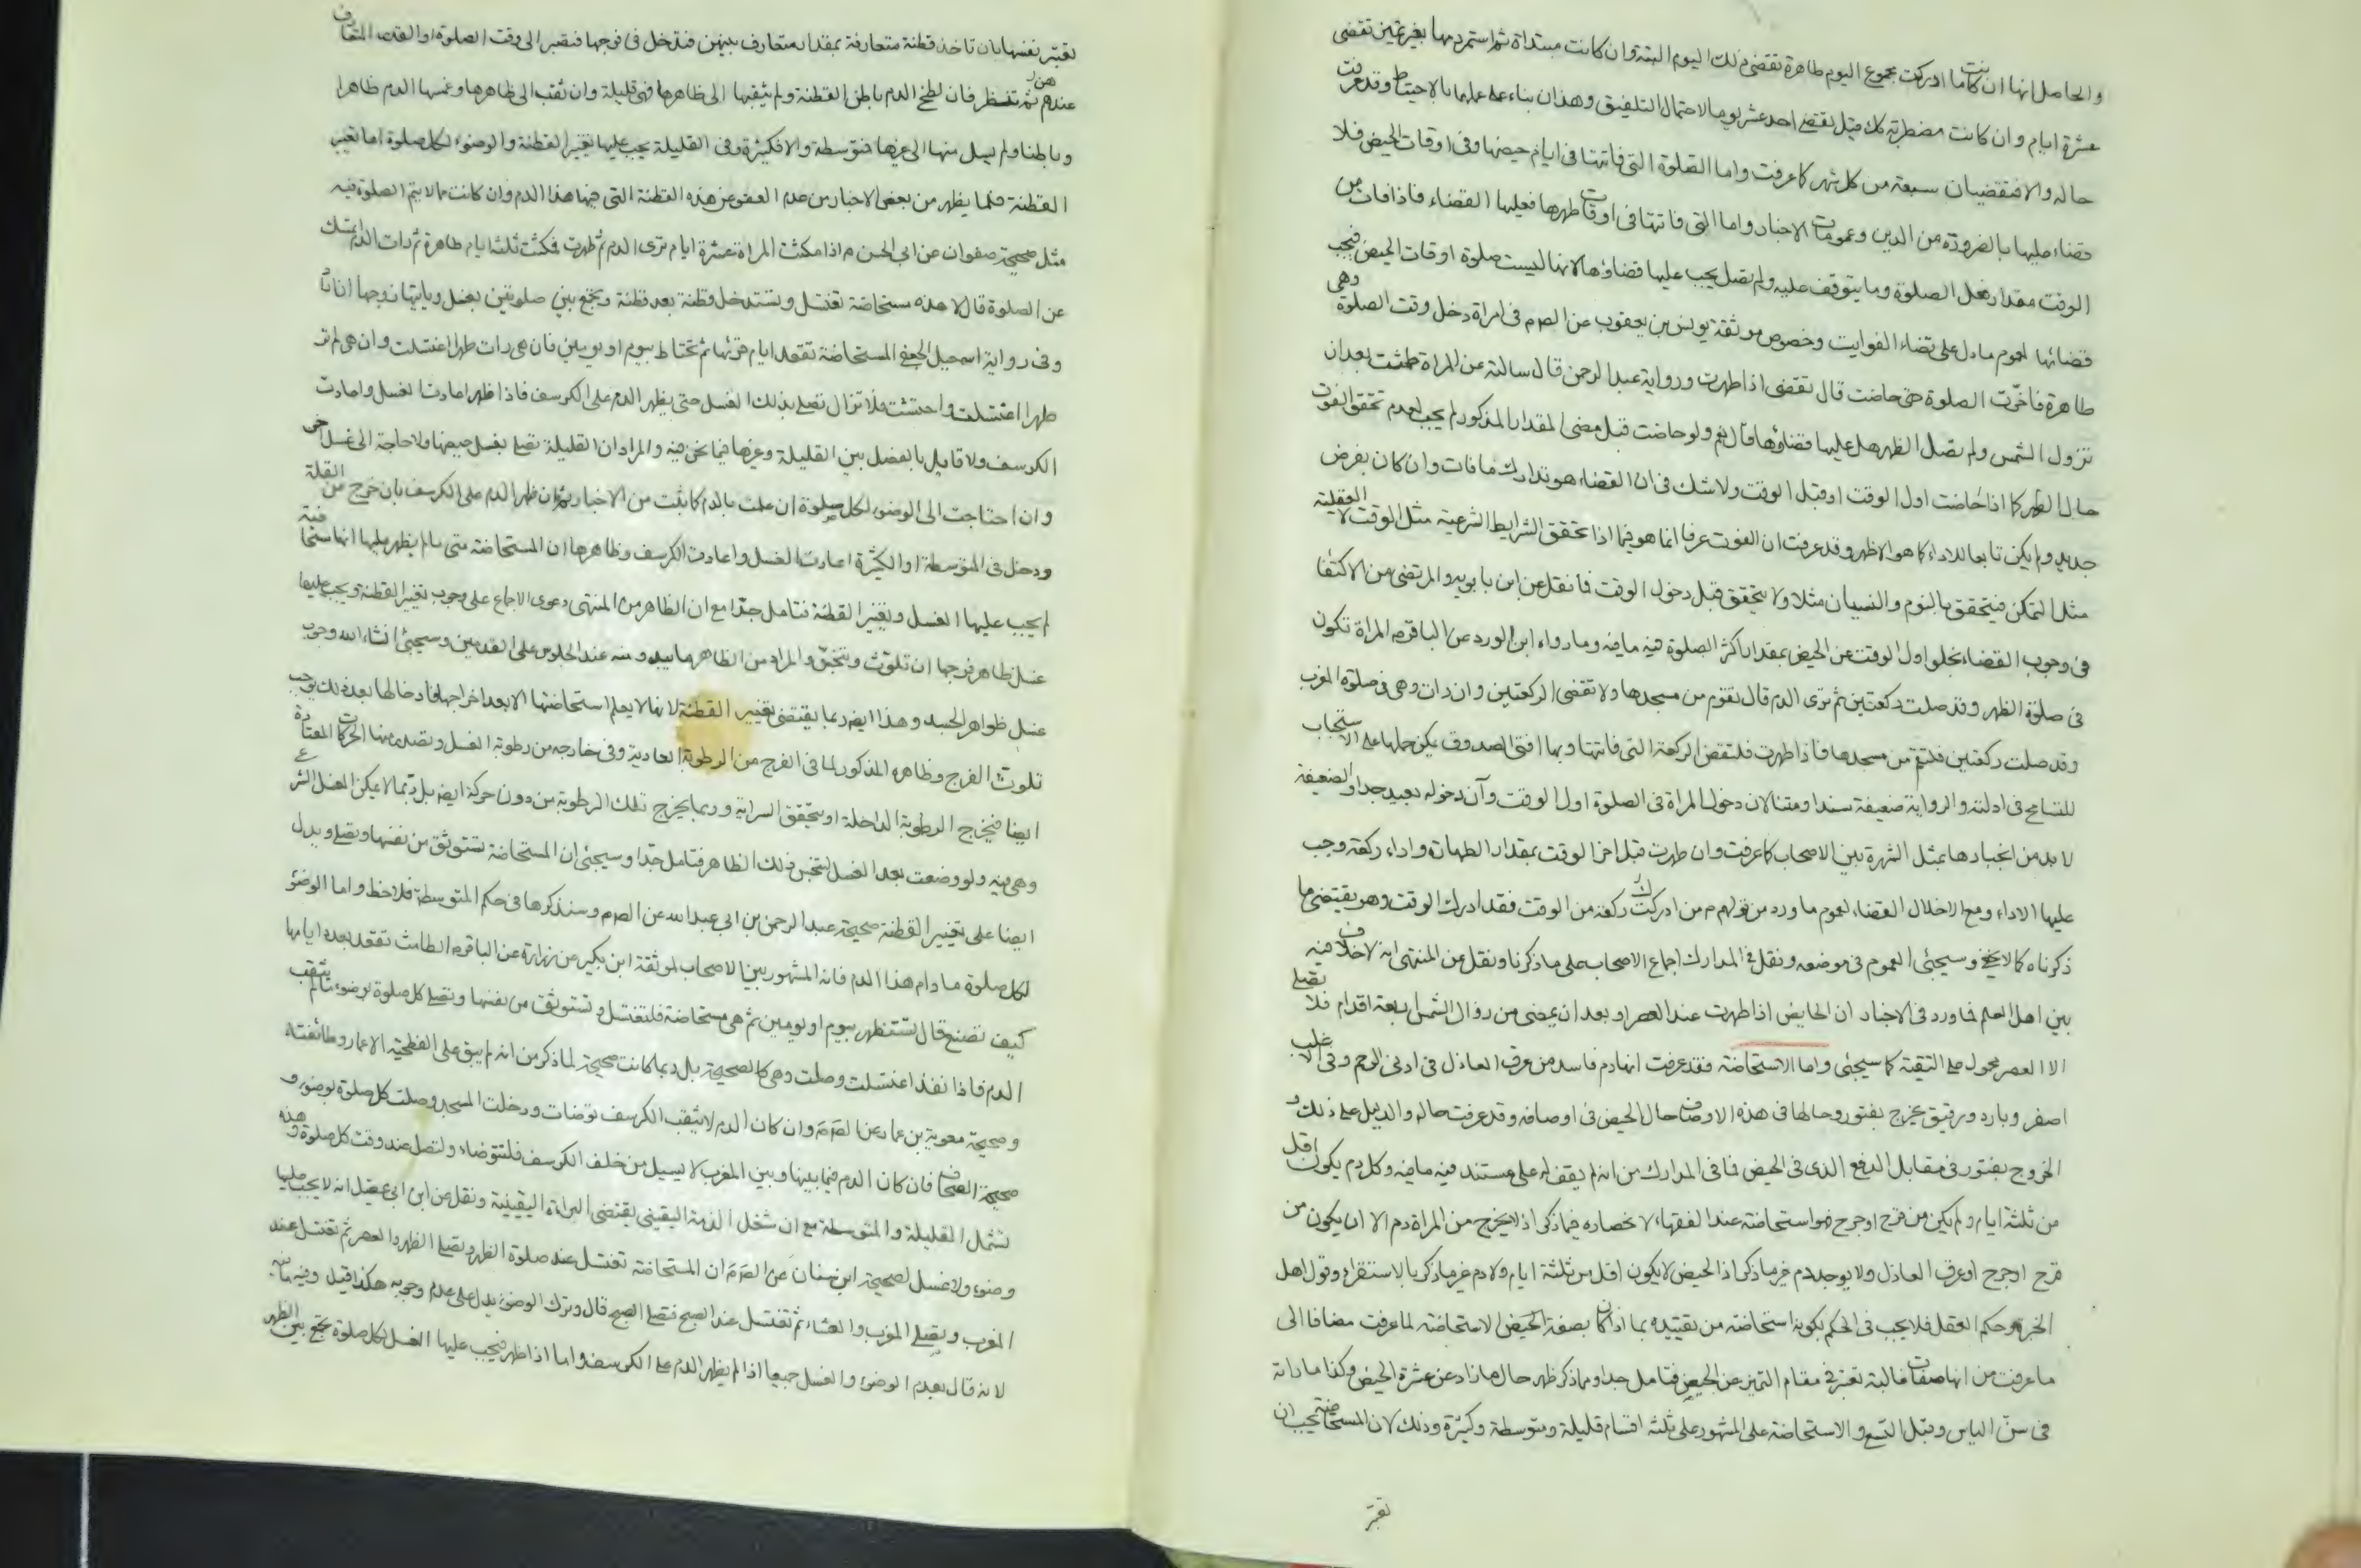 والحاصل انها ان كانت ما ادركت مجموع اليوم طاهرة تقضى ذلك اليوم البتة وان كانت مبتداة ثم استمر دمها بغير تمييز تقضى
عشرة ايام وان كانت مضطربة كك قيل تقضى احد عشر يوما لاحتمال التلفيق وهذان بناء على عملها بالاحتياط وقد عرفت
حاله والا فتقضيان سبعة من كل شهر كما عرفت واما الصلوة التى فاتتها فى ايام حيضها وفى اوقات الحيض فلا
قضاء عليها بالضرورة من الدين وعمومات الاخبار واما التى فاتتها فى اوقات طهرها فعليها القضاء فاذا فات من
الوقت مقدار فعل الصلوة وما يتوقف عليه ولم تصل يجب عليها قضاؤها لانها ليست صلوة اوقات الحيض فيجب
قضائها لعموم ما دل على قضاء الفوايت وخصوص موثقة يونس بن يعقوب عن الصم فى امراة دخل وقت الصلوة وهى
طاهرة فاخرت الصلوة حتى حاضت قال تقضى اذا طهرت ورواية عبد الرحمن قال سالته عن المراة طمثت بعد ان
تزول الشمس ولم تصل الظهر هل عليها قضاؤها قال نعم ولو حاضت قبل مضى المقدار المذكور لم يجب لعدم تحقق الفوت
حال الطهر كما اذا حاضت اول الوقت او قبل الوقت ولا شك فى ان القضاء هو تدارك ما فات وان كان بفرض
جديد ولم يكن تابعا للاداء كما هو الاظهر وقد عرفت ان الفوت عرفا انما هو فيما اذا تحقق الشرايط الشرعية مثل الوقت لا العقلية
مثل التمكن فيتحقق بالنوم والنسيان مثلا ولا يتحقق قبل دخول الوقت فما نقل عن ابن بابويه والمرتضى من الاكتفا
فى وجوب القضاء بخلو اول الوقت عن الحيض بمقدار اكثر الصلوة فيه ما فيه وما رواه ابن الورد عن الباقرم المراة تكون
فى صلوة الظهر وقد صلت ركعتين ثم ترى الدم قال تقوم من مسجدها ولا تقضى الركعتين وان رات وهى فى صلوة المغرب
وقد صلت ركعتين فلتقم من مسجدها فاذا طهرت فلتقض الركعة التى فاتتها وبها افتى الصدوق يمكن حملها على الاستحباب
للتسامح فى ادلته والرواية ضعيفة سندا ومتنا لان دخول المراة فى الصلوة اول الوقت وآن دخوله بعيد جدا والضعيفة
لا بد من انجبارها بمثل الشهرة بين الاصحاب كما عرفت وان طهرت قبل اخر الوقت بمقدار الطهارة واداء ركعة وجب
عليها الاداء ومع الاخلال القضاء لعموم ما ورد من قولهم م من ادرك ركعة من الوقت فقد ادرك الوقت وهو يقتضى ما
ذكرناه كما لا يخفى وسيجئ العموم فى موضعه ونقل فى المدارك اجماع الاصحاب على ما ذكرنا ونقل عن المنتهى انه لا خلاف فيه
بين اهل العلم فما ورد فى الاخبار ان الحايض اذا طهرت عند العصر او بعد ان يمضى من زوال الشمس اربعة اقدام فلا تصلى
الا العصر محمول على التقية كما سيجئى واما الاستحاضة فقد عرفت انها دم فاسد من عرف العاذل فى ادنى الرحم وفى الاغلب
اصفر وبارد ورقيق يخرج بفتور وحالها فى هذه الاوصاف حال الحيض فى اوصافه وقد عرفت حاله والدليل على ذلك و
الخروج بفتور فى مقابل الدفع الذى فى الحيض فما فى المدارك من انه لم يقف له على مستند فيه ما فيه وكل دم يكون اقل
من ثلثة ايام ولم يكن من قرح او جرح فهو استحاضة عند الفقهاء لانحصاره فيما ذكر اذ لا يخرج من المراة دم الا ان يكون من
قرح او جرح او عرق العاذل ولا يوجد دم غير ما ذكر اذ الحيض لا يكون اقل من ثلثة ايام ولا دم غير ما ذكر بالاستقراء وقول اهل
الخبرة وحكم العقل فلا يجب فى الحكم بكونه استحاضة من تقييده بما اذا كان بصفة الحيض الاستحاضة لما عرفت مضافا الى
ما عرفت من انها صفات غالبة تعتبر فى مقام التميز عن الحيض فتامل جدا ومما ذكر ظهر حال ما زاد عن عشرة الحيض وكذا ما راته
فى سن الياس وقبل التسع والاستحاضة على المشهور على ثلثة اقسام قليلة ومتوسطة وكثيرة وذلك لان المستحاضة يجب ان
تعتبر
تعتبر نفسها بان تاخذ قطنة متعارفة بمقدار متعارف بينهن فتدخل فى فرجها فتصبر الى وقت الصلوة او القدر المتعارف
عندهن ثم تنظر فان لطخ الدم باطن القطنة ولم يثقبها الى ظاهرها فهى قليلة وان ثقب الى ظاهرها وغمسها الدم ظاهرا
وباطنا ولم يسل منها الى غيرها فمتوسطة والا فكثيرة وفى القليلة يجب عليها تغيير القطنة والوضوء لكل صلوة اما تغيير
القطنة فلما يظهر من بعض الاخبار من عدم العفو عن هذه القطنة التى فيها هذا الدم وان كانت مما لا يتم الصلوة فيه
مثل صحيحة صفوان عن ابى الحسن م اذا مكثت المراة عشرة ايام ترى الدم ثم طهرت فمكثت ثلثة ايام طاهرة ثم رات الدم اتمسك
عن الصلوة قال لا هذه مستحاضة تغتسل وتستدخل قطنة بعد قطنة وتجمع بين صلوتين بغسل وياتيها زوجها ان اراد
وفى رواية اسمعيل الجعفى المستحاضة تقعد ايام قرئها ثم تحتاط بيوم او يومين فان هى رات طهرا اغتسلت وان هى لم تر
طهرا اغتسلت واحتشت فلا تزال تصلى بذلك الغسل حتى يظهر الدم على الكرسف فاذا ظهر اعادت الغسل واعادت
الكرسف ولا قايل بالفصل بين القليلة وغيرها فيما نحن فيه والمراد ان القليلة تصلى بغسل حيضها ولا حاجة الى غسل اخر
وان احتاجت الى الوضوء لكل صلوة ان علمت بالدم كما ثبت من الاخبار ثم ان ظهر الدم على الكرسف بان خرج عن القلة
ودخل فى المتوسطة او الكثيرة اعادت الغسل واعادت الكرسف وظاهرها ان المستحاضة متى ما لم يظهر عليها انها مستحاضة
لم يجب عليها الغسل وتغيير القطنة فتامل جدا مع ان الظاهر من المنتهى دعوى الاجماع على وجوب تغيير القطنة ويجب عليها
غسل ظاهر فرجها ان تلوث وتنجس والمراد من الظاهر ما يبدو منه عند الجلوس على القدمين وسيجئ انشاء الله وجوب
غسل ظواهر الجسد وهذا ايضا ربما يقتضى تغيير القطنة لانها لا يعلم استحاضتها الا بعد اخراجها فادخالها بعد ذلك يوجب
تلوث الفرج وظاهره المذكور لما فى الفرج من الرطوبة العادية وفى خارجه من رطوبة الغسل وتصدر منها الحركات المعتادة
ايضا فيخرج الرطوبة الداخلة او يتحقق السراية وربما يخرج تلك الرطوبة من دون حركة ايضا بل ربما لا يمكن الغسل الشرعى
وهى فيه ولو وضعت بعد الغسل لتنجس ذلك الظاهر فتامل جدا وسيجئى ان المستحاضة تستوثق من نفسها وتصلى ويدل
ايضا على تغيير القطنة صحيحة عبد الرحمن بن ابى عبد الله عن الصم وسنذكرها فى حكم المتوسطة فلاحظ واما الوضوء
لكل صلوة ما دام هذا الدم فانه المشهور بين الاصحاب لموثقة ابن بكير عن زرارة عن الباقرم الطامث تقعد بعدد ايامها
كيف تصنع قال تستظهر بيوم او يومين ثم هى مستحاضة فلتغتسل وتستوثق من نفسها وتصلى كل صلوة بوضوء ما لم يثقب
الدم فاذا نفذ اغتسلت وصلت وهى كالصحيحة بل ربما كانت صحيحة لما ذكر من انه لم يبق على الفطحية الا عمار وطائفته
وصحيحة معوية بن عمار عن الصم وان كان الدم لا يثقب الكرسف توضات ودخلت المسجد وصلت كل صلوة بوضوء و
صحيحة الصحاف فان كان الدم فيما بينها وبين المغرب لا يسيل من خلف الكرسف فلتتوضاء ولتصل عند وقت كل صلوة وهذه
تشمل القليلة والمتوسطة مع ان شغل الذمة اليقينى يقتضى البراءة اليقينية ونقل عن ابن ابى عقيل انه لا يجب عليها
وضوء ولا غسل لصحيحة ابن سنان عن الصم ان المستحاضة تغتسل عند صلوة الظهر وتصلى الظهر والعصر ثم تغتسل عند
المغرب وتصلى المغرب والعشاء ثم تغتسل عند الصبح فتصلى الصبح قال وترك الوضوء يدل على عدم وجوبه هكذا قيل وفيه ما فيه
لانه قال بعدم الوضوء والغسل جميعا اذا لم يظهر الدم على الكرسف واما اذا ظهر فيجب عليها الغسل لكل صلوة تجمع بين الظهر